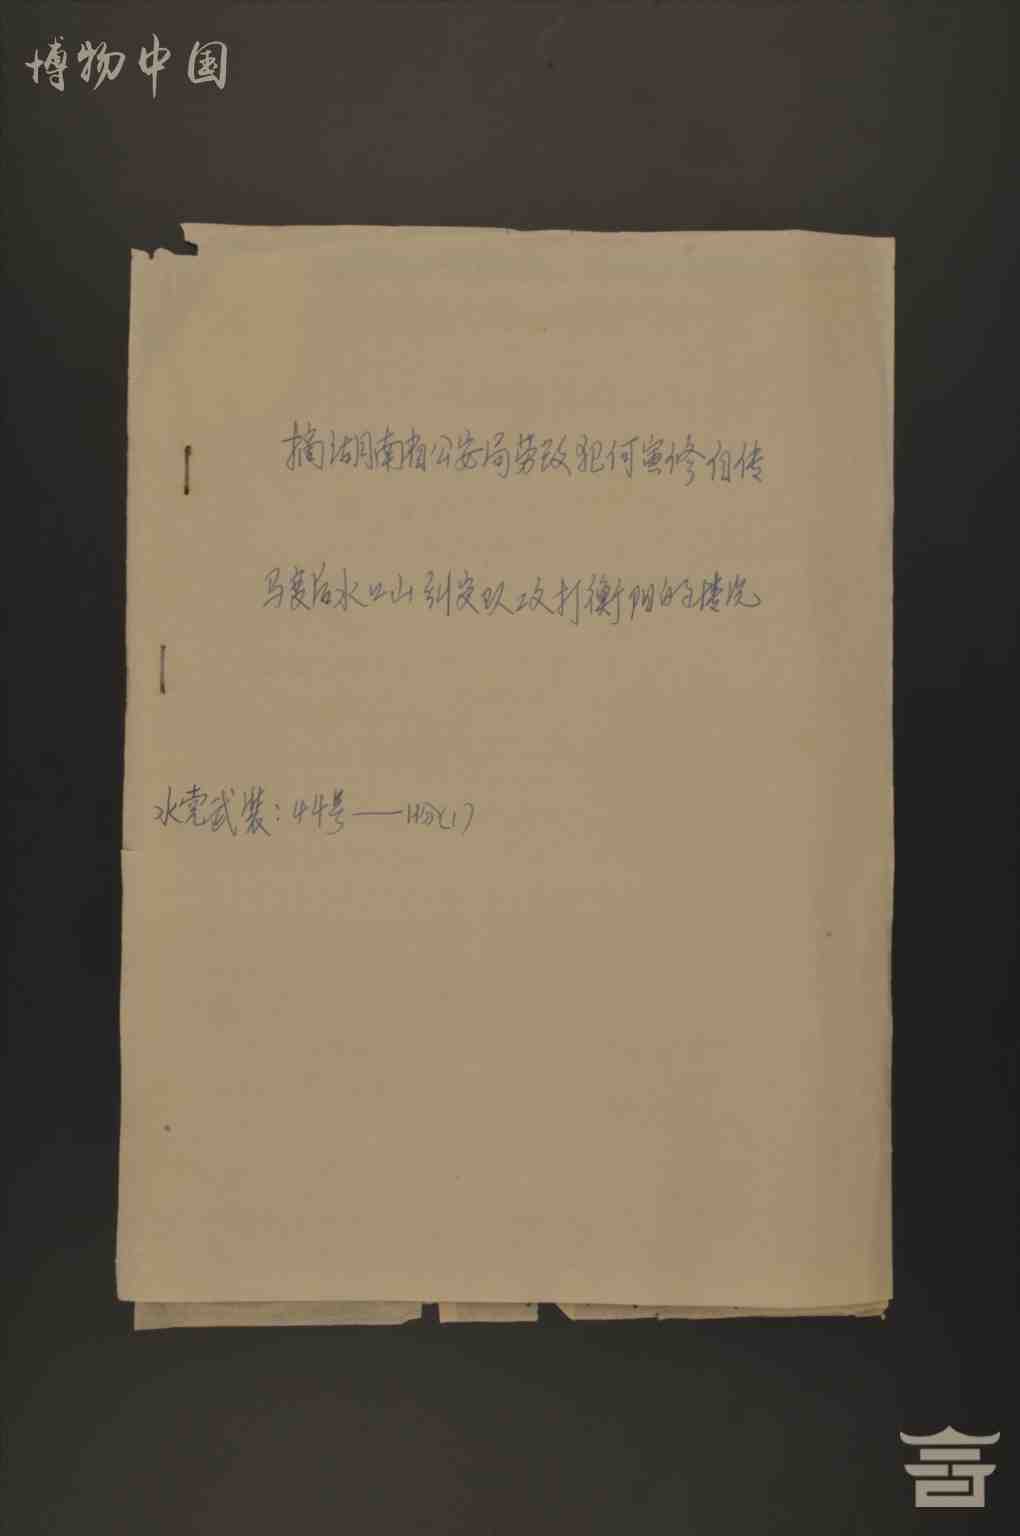 博物中国
摘湖南省公安局劳改犯何寅修自传
马变后水口山到安队攻打衡阳的情况
水党武装:44号——1份(1)